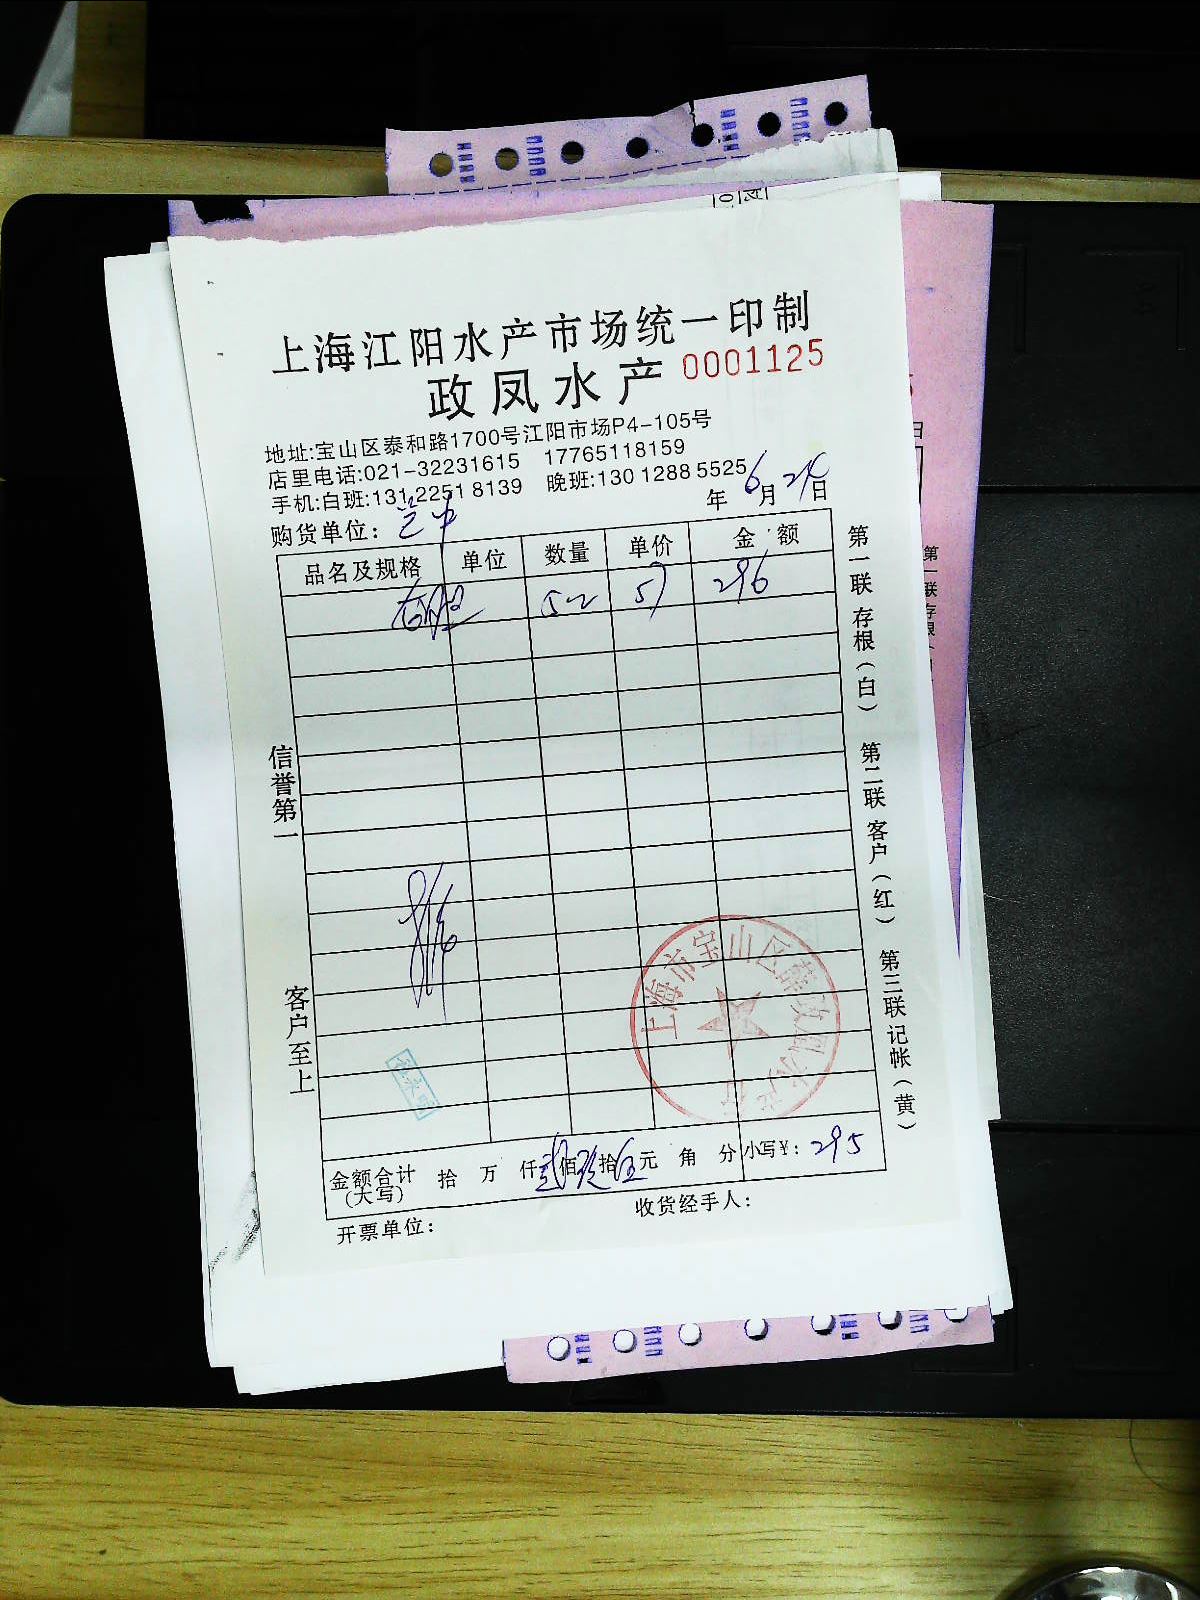 上海江阳水产市场统一印制
政凤水产 0001125
地址:宝山区泰和路1700号江阳市场P4-105号
店里电话:021-32231615 17765118159
手机:白班:131 2251 8139 晚班:130 1288 5525
年 6月 24日
购货单位:
品名及规格 单位 数量 单价 金额
52 57 296
第一联存根(白) 第二联客户(红) 第三联记帐(黄)
信誉第一
客户至上
上海市宝山区薛政凤水产行
金额合计(大写) 拾 万 仟 贰佰玖拾伍元 角 分 小写¥: 295
开票单位: 收货经手人:
第一联存根(